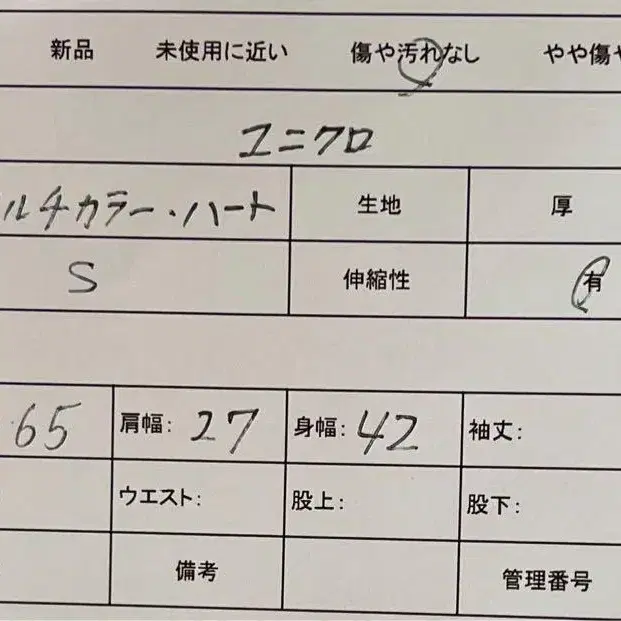 新品 未使用に近い 傷や汚れなし やや傷や
ユニクロ
ルチカラー・ハート 生地 厚
S 伸縮性 有
65 肩幅: 27 身幅: 42 袖丈:
ウエスト: 股上: 股下:
備考 管理番号